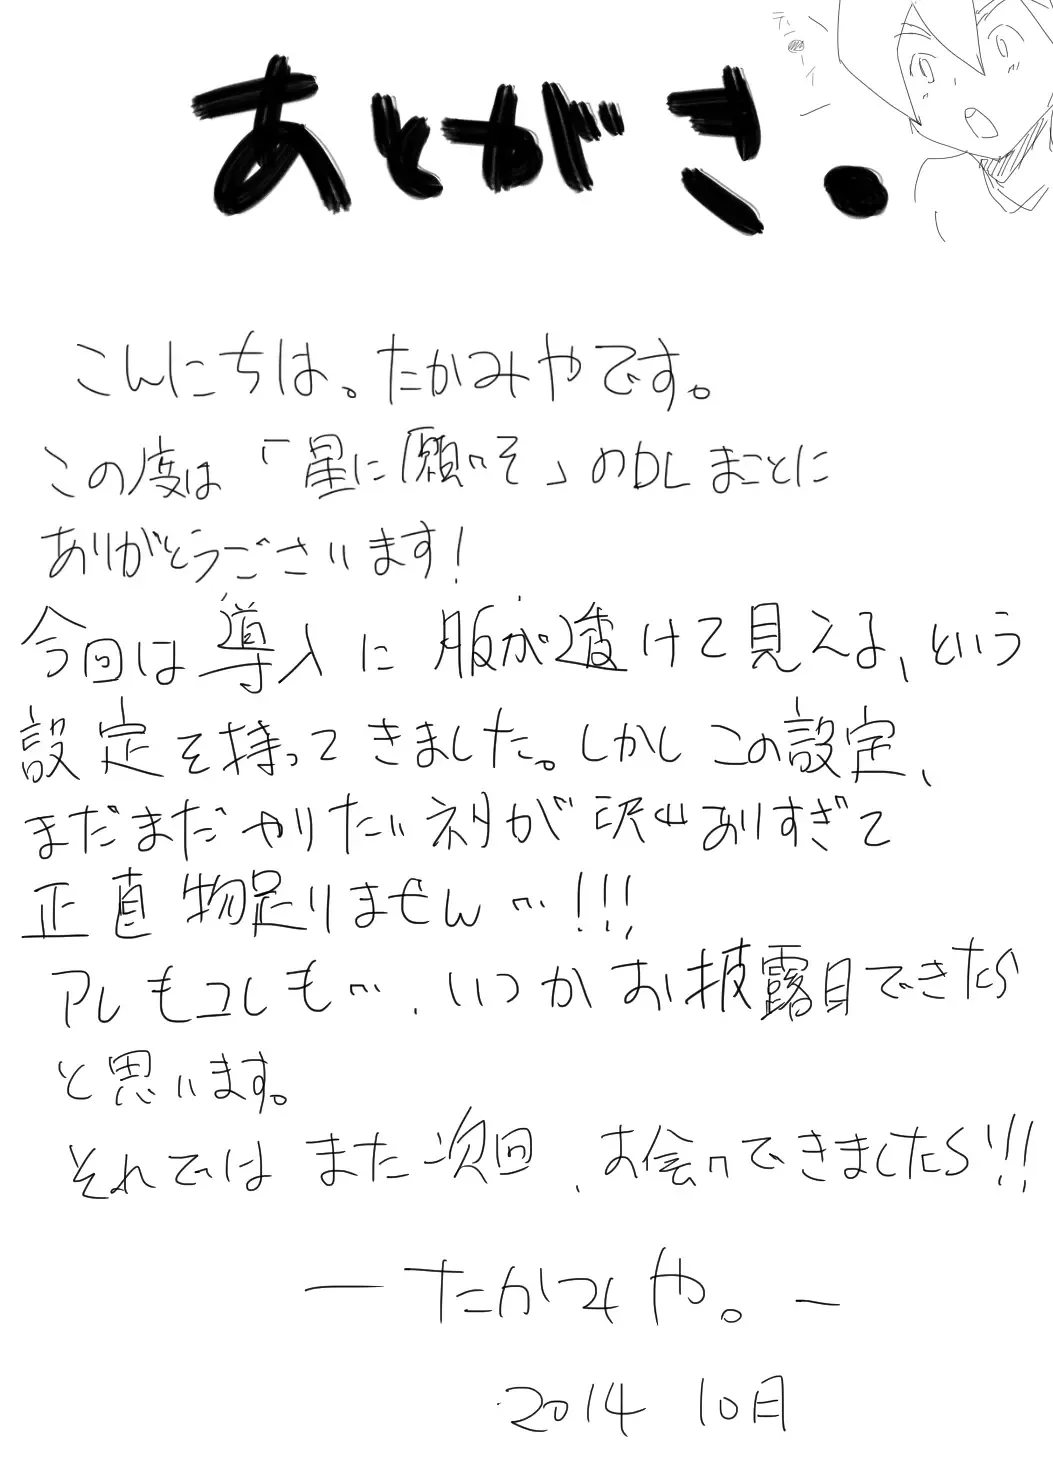 あとがき.
こんにちは。たかみやです。
この度は「星に願いを」のDLまことに
ありがとうございます!
今回は導入に服が透けて見える、という
設定を持ってきました。しかしこの設定、
まだまだやりたいネタが沢山ありすぎて
正直物足りません…!!!
アレもコレも…、いつかお披露目できたら
と思います。
それではまた次回、お会いできましたら!!!
—たかみや。—
2014 10月